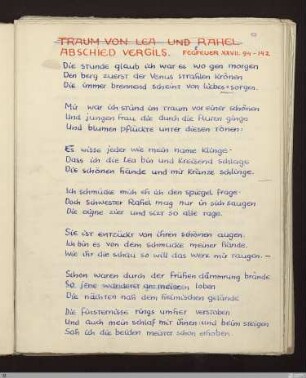 TRAUM VON LEA UND RAHEL
ABSCHIED VERGILS. FEGFEUER XXVII. 94-142
Die stunde glaub ich war es wo gen morgen
Den berg zuerst der Venus strahlen krönen
Die immer brennend scheint von liebes-sorgen.
Mir war ich stünd im traum vor einer schönen
Und jungen frau die durch die fluren ginge
Und blumen pflückte unter diesen tönen:
Es wisse jeder wie mein name klinge:
Dass ich die Lea bin und kreisend schlinge
Die schönen hände und mir kränze schlinge.
Ich schmücke mich eh ich den spiegel frage.
Doch schwester Rahel mag nur in sich saugen
Die eigne zier und sizt so alle tage.
Sie ist entzückt von ihren schönen augen.
Ich bin es von dem schmucke meiner hände.
Wie ihr die schau so will das werk mir taugen. -
Schon waren durch der frühen dämmrung brände
So jene wanderer am meisten loben
Die nächten nah dem heimischen gelände
Die füsternisse rings umher verstoben
Und auch mein schlaf mit ihnen und beim steigen
Sah ich die beiden meister schon erhoben.